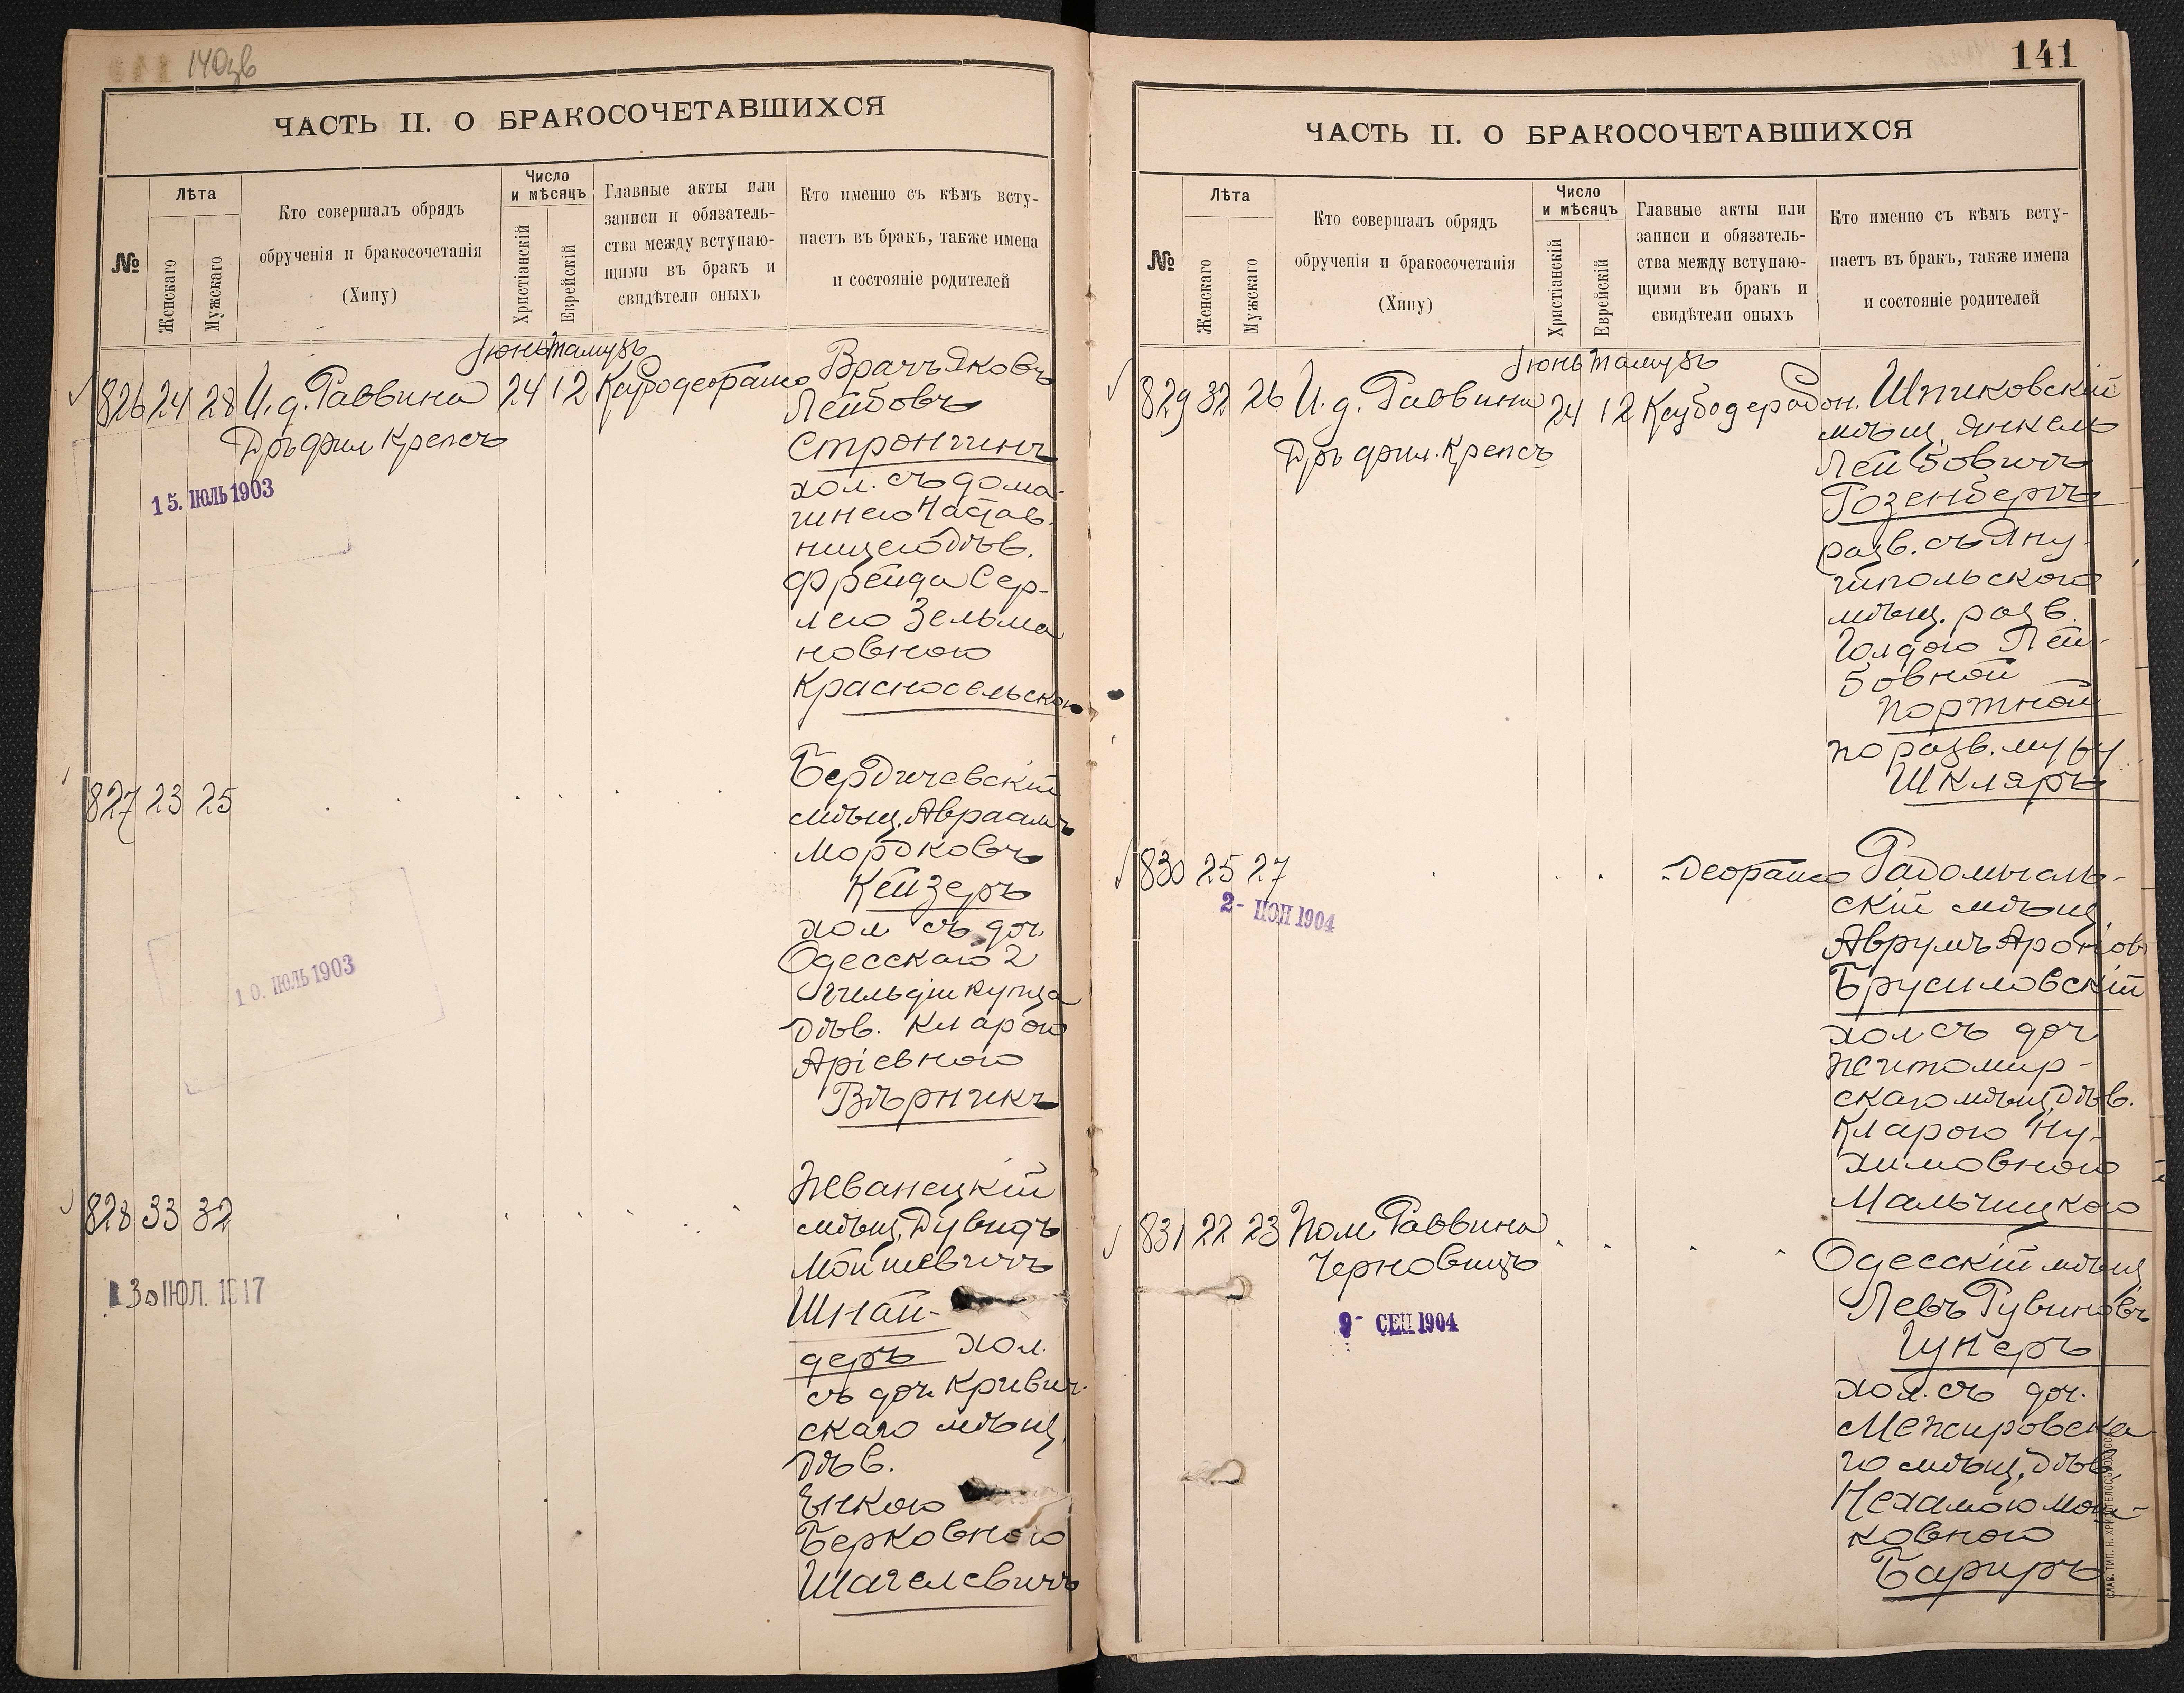 140зв
ЧАСТЬ II. О БРАКОСОЧЕТАВШИХСЯ
№
Лѣта
Женскаго
Мужскаго
Кто совершалъ обрядъ
обрученія и бракосочетанія
(Хипу)
Число
и мѣсяцъ
Христіанскій
Еврейскій
Главные акты или
записи и обязатель-
ства между вступаю-
щими въ бракъ и
свидѣтели оныхъ
Кто именно съ кѣмъ всту-
паетъ въ бракъ, также имена
и состояніе родителей
Іюнь Тамузъ
826 24 28 И. д. Раввина 24 12
Дръ фил Крепсъ
15. ІЮЛЬ 1903
Врачъ Яковъ
Лейбовъ
Стронгинъ
хол. съ дома-
шнею Настав-
ницею дѣв.
Фрейда Сер-
лею Зельма
новною
Красносельскою
827 23 25
10. ІЮЛЬ 1903
Бердичевскій
мѣщ. Авраамъ
Мордковъ
Кейзеръ
хол съ доч.
Одесскаго 2
гильдіи купца
дѣв. Кларою
Аріевною
Вѣрникъ
828 33 32
30 ІЮЛ. 1917
Жванецкій
мѣщ. Дувидъ
Мойшевичъ
Шнай-
деръ хол.
съ доч. Кривич-
скаго мѣщ.
дѣв.
Енкою
Берковною
Шагелевичъ
141
ЧАСТЬ II. О БРАКОСОЧЕТАВШИХСЯ
№
Лѣта
Женскаго
Мужскаго
Кто совершалъ обрядъ
обрученія и бракосочетанія
(Хипу)
Число
и мѣсяцъ
Христіанскій
Еврейскій
Главные акты или
записи и обязатель-
ства между вступаю-
щими въ бракъ и
свидѣтели оныхъ
Кто именно съ кѣмъ всту-
паетъ въ бракъ, также имена
и состояніе родителей
Іюнь Тамузъ
829 32 26 И. д. Раввина 24 12
Дръ фил. Крепсъ
Шпиковскій
мѣщ. Янкель
Лейбовичъ
Розенбергъ
разв. съ Яну-
шпольского
мѣщ. разв.
Голдою Лей-
бовной
Портной
по разв. мужу
Шкляръ
830 25 27
2- ІЮН 1904
Радомысль-
скій мѣщ.
Аврумъ Ароновъ
Брусиловскій
хол съ доч
Житомир-
скаго мѣщ. дѣв.
Кларою Ну-
химовною
Мальчицкою
831 22 23 Пом Раввина
Черновицъ
9- СЕН 1904
Одесскій мѣщ
Левъ Рувиновъ
Гунеръ
хол. съ доч.
Межировска
го мѣщ. дѣв.
Нехамою Мош-
ковною
Бариръ